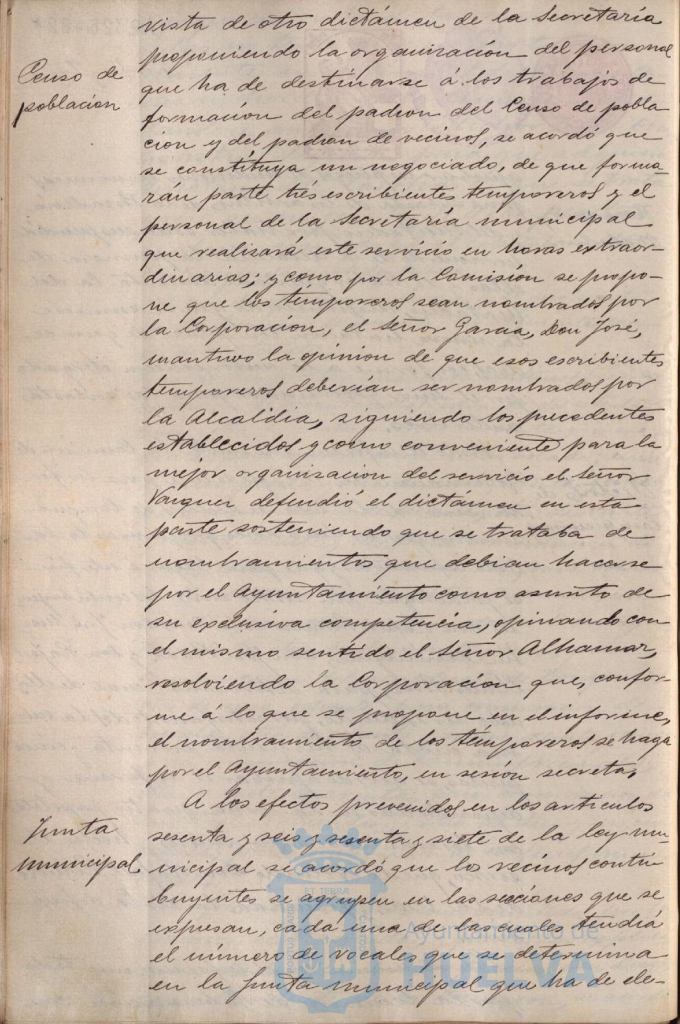 vista de otro dictámen de la Secretaría
proponiendo la organización del personal
Censo de
población
que ha de destinarse á los trabajos de
formación del padron del Censo de pobla
cion y del padron de vecinos, se acordó que
se constituya un negociado, de que forma-
rán parte trés escribientes temporeros y el
personal de la Secretaría municipal
que realizará este servicio en horas extraor-
dinarias; y como por la Comisión se propo-
ne que los temporeros sean nombrados por
la Corporación, el Señor Garcia, Don José,
mantuvo la opinion de que esos escribientes
temporeros deberían ser nombrados por
la Alcaldia, siguiendo los precedentes
establecidos y como conveniente para la
mejor organizacion del servicio el Señor
Vazquez defendió el dictámen en esta
parte sosteniendo que se trataba de
nombramientos que debian hacerse
por el Ayuntamiento como asunto de
su exclusiva competencia, opinando con
el mismo sentido el Señor Alhamar,
resolviendo la Corporacion que, confor-
me á lo que se propone en el informe,
el nombramiento de los temporeros se haga
por el Ayuntamiento, en sesión secreta.
Junta
municipal
A los efectos prevenidos en los articulos
sesenta y seis y sesenta y siete de la ley mu-
nicipal se acordó que los vecinos contri-
buyentes se agrupen en las secciones que se
expresan, cada una de las cuales tendrá
el número de vocales que se determina
en la Junta municipal que ha de ele-
Ayuntamiento de
HUELVA